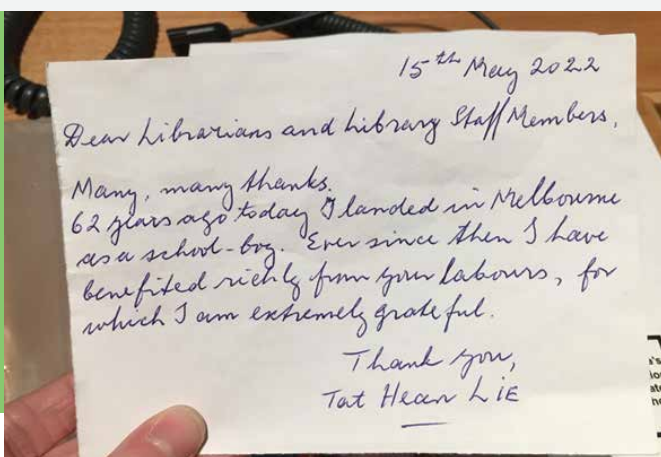 15th May 2022
Dear Librarians and Library Staff Members,
Many, many thanks.
62 years ago today I landed in Melbourne
as a school-boy. Ever since then I have
benefited richly from your labours, for
which I am extremely grateful.
Thank you,
Tat Hean LIE